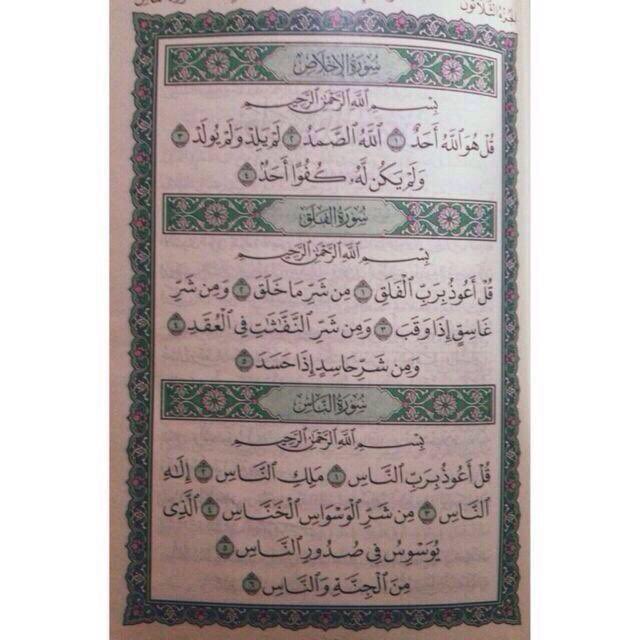 الجزء الثلاثون
سورة الإخلاص
بِسْمِ ٱللَّهِ ٱلرَّحْمَٰنِ ٱلرَّحِيمِ
قُلْ هُوَ ٱللَّهُ أَحَدٌ ١ ٱللَّهُ ٱلصَّمَدُ ٢ لَمْ يَلِدْ وَلَمْ يُولَدْ ٣
وَلَمْ يَكُن لَّهُۥ كُفُوًا أَحَدٌۢ ٤
سورة الفلق
بِسْمِ ٱللَّهِ ٱلرَّحْمَٰنِ ٱلرَّحِيمِ
قُلْ أَعُوذُ بِرَبِّ ٱلْفَلَقِ ١ مِن شَرِّ مَا خَلَقَ ٢ وَمِن شَرِّ
غَاسِقٍ إِذَا وَقَبَ ٣ وَمِن شَرِّ ٱلنَّفَّٰثَٰتِ فِي ٱلْعُقَدِ ٤
وَمِن شَرِّ حَاسِدٍ إِذَا حَسَدَ ٥
سورة الناس
بِسْمِ ٱللَّهِ ٱلرَّحْمَٰنِ ٱلرَّحِيمِ
قُلْ أَعُوذُ بِرَبِّ ٱلنَّاسِ ١ مَلِكِ ٱلنَّاسِ ٢ إِلَٰهِ
ٱلنَّاسِ ٣ مِن شَرِّ ٱلْوَسْوَاسِ ٱلْخَنَّاسِ ٤ ٱلَّذِي
يُوَسْوِسُ فِي صُدُورِ ٱلنَّاسِ ٥
مِنَ ٱلْجِنَّةِ وَٱلنَّاسِ ٦